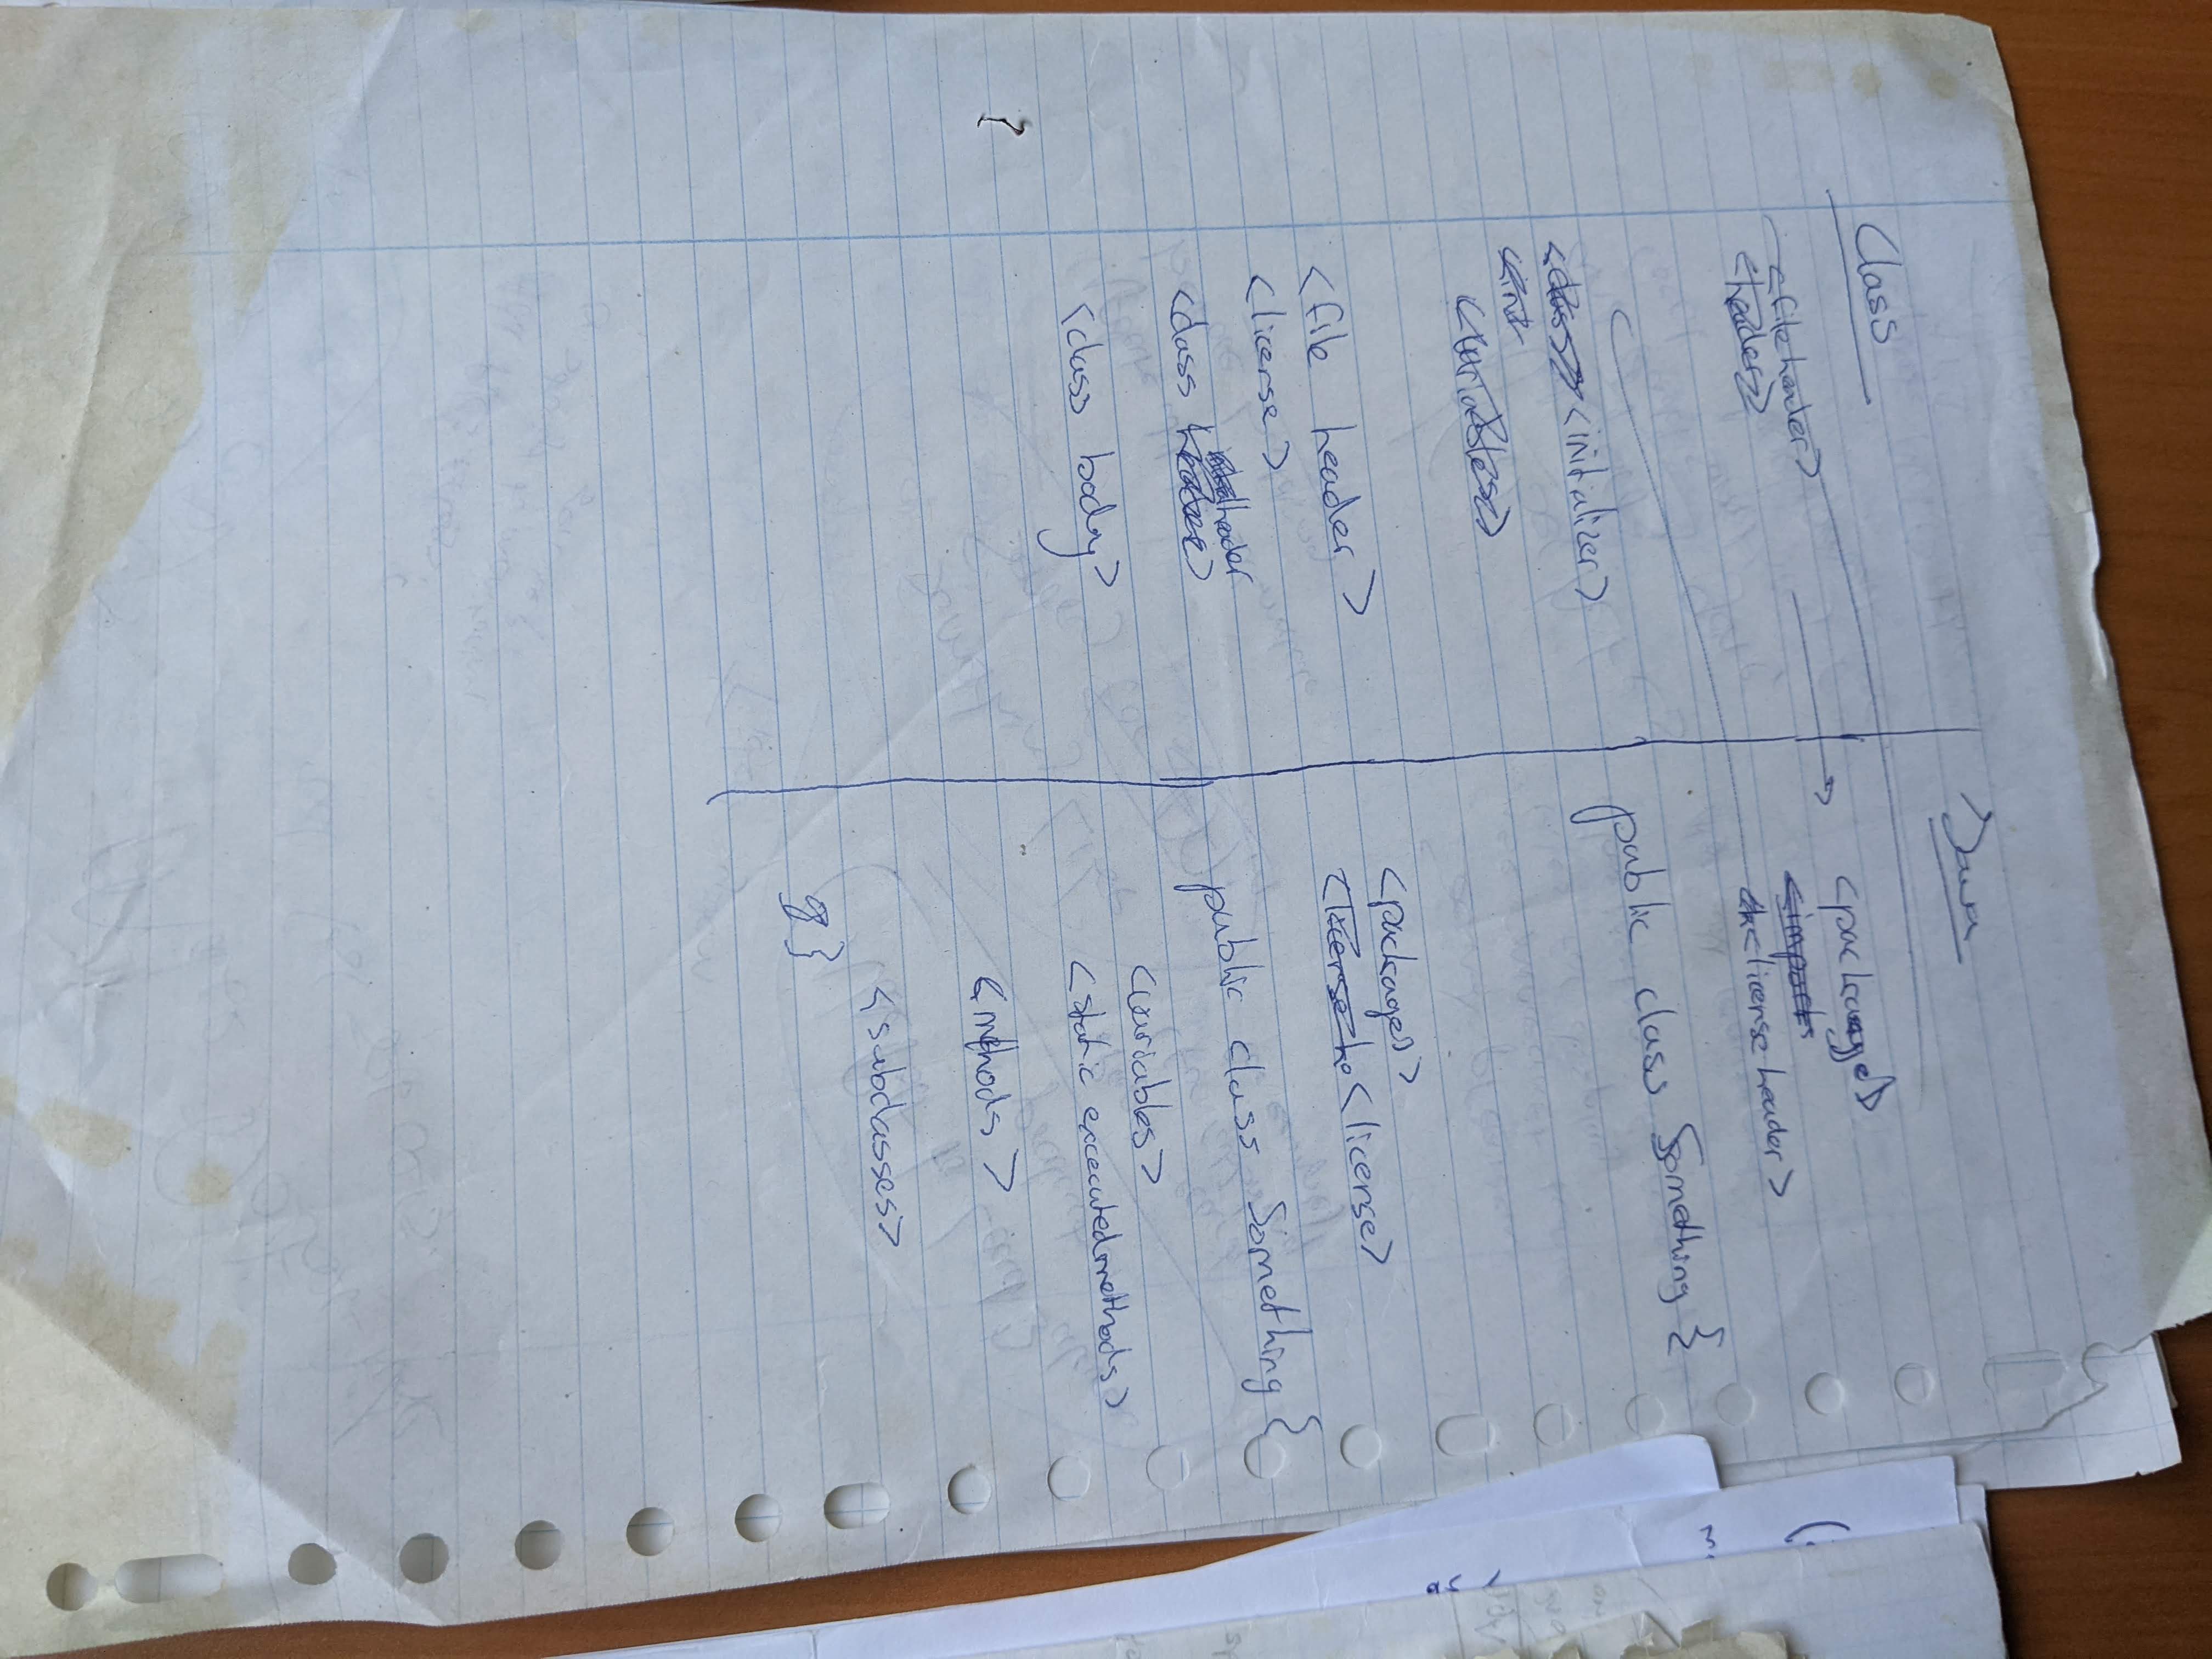 Class
<file header>
<header>
<class> <initializer>
<init
<variables>
<file header>
<license>
header
<class header>
<class body>
Java
<package>
<imports
<license header>
public class Something {
<packages>
<license he <license>
public class Something {
<variables>
<static executed methods>
<methods>
<subclasses>
}